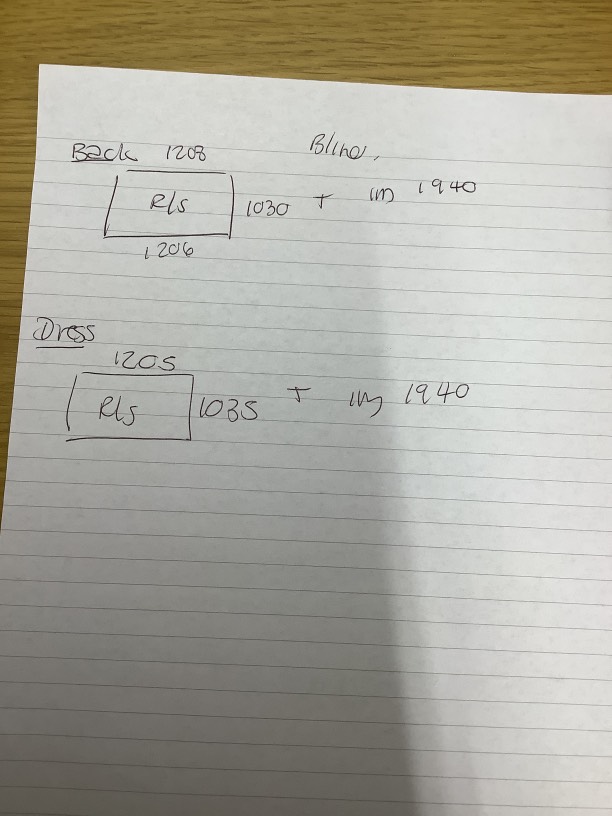 Back 1208 Blind,
R/s 1030 + 1940
1206
Dress
1205
R/s 1035 + 1940